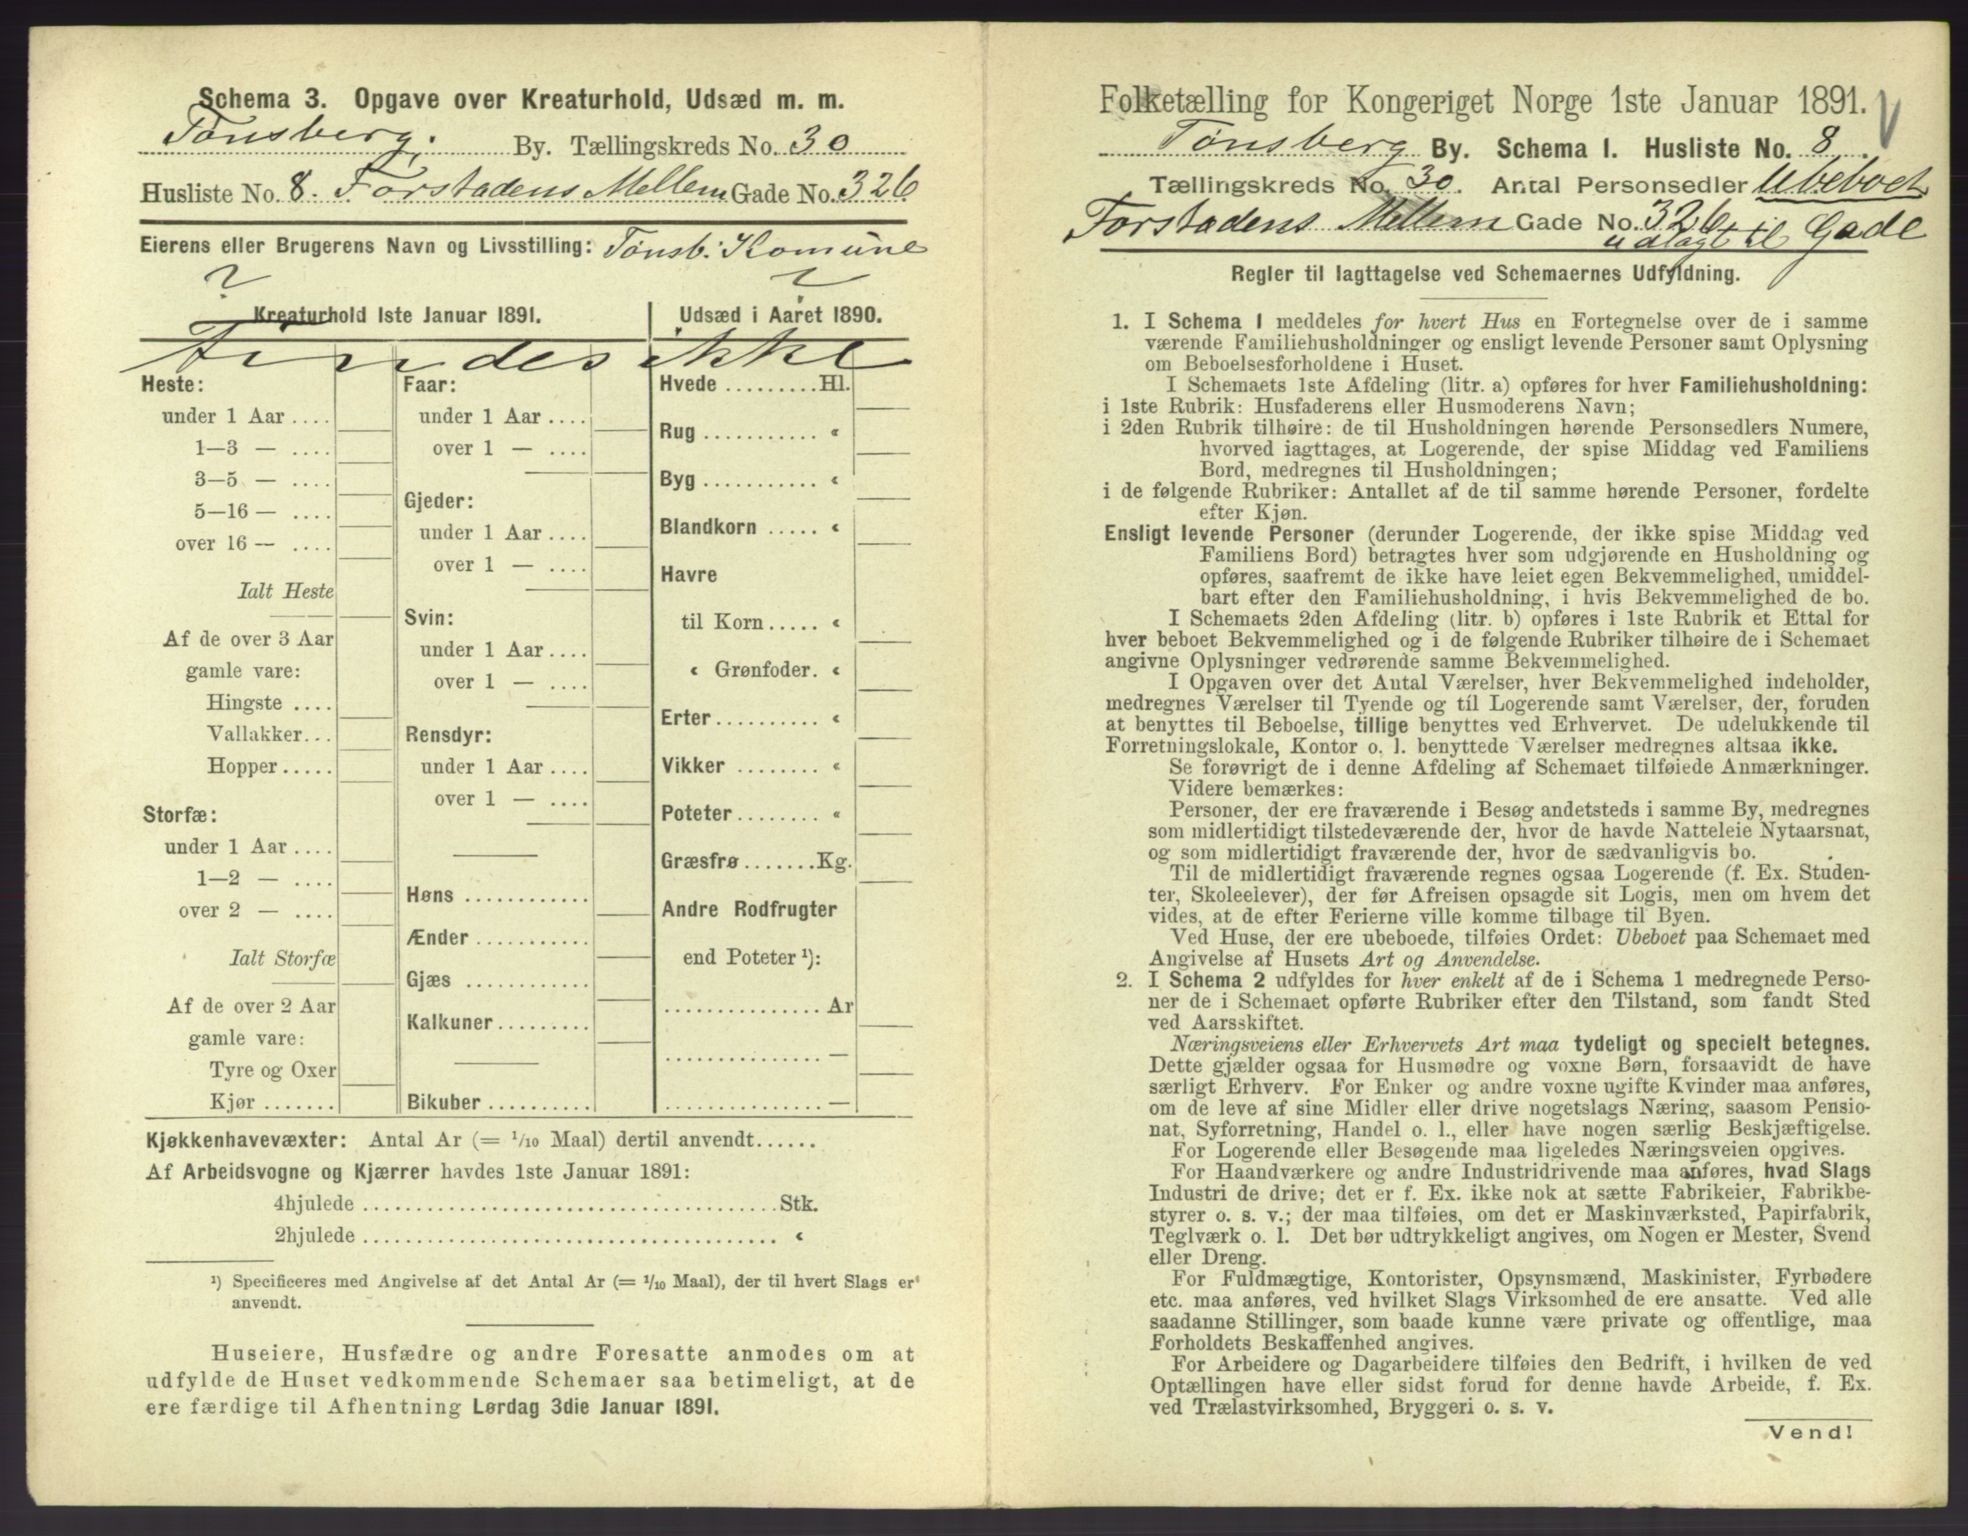 Schema 3. Opgave over Kreaturhold, Udsæd m. m.
Tønsberg. By. Tællingskreds No. 30
Husliste No. 8. Forstadens Mellem Gade No. 326
Eierens eller Brugerens Navn og Livsstilling: Tønsb: Komune
Kreaturhold 1ste Januar 1891.
Udsæd i Aaret 1890.
Findes ikke
Heste:
under 1 Aar ....
1—3 — ....
3—5 — ....
5—16 — ....
over 16 — ....
Ialt Heste
Af de over 3 Aar
gamle vare:
Hingste ....
Vallakker...
Hopper.....
Storfæ:
under 1 Aar ....
1—2 — ....
over 2 — ....
Ialt Storfæ
Af de over 2 Aar
gamle vare:
Tyre og Oxer
Kjør .......
Faar:
under 1 Aar ....
over 1 — ....
Gjeder:
under 1 Aar ....
over 1 — ....
Svin:
under 1 Aar ....
over 1 — ....
Rensdyr:
under 1 Aar ....
over 1 — ....
Høns ............
Ænder ...........
Gjæs ............
Kalkuner.........
Bikuber ..........
Hvede .........Hl.
Rug ........... «
Byg ........... «
Blandkorn ..... «
Havre
til Korn..... «
« Grønfoder. «
Erter.......... «
Vikker ........ «
Poteter........ «
Græsfrø.......Kg.
Andre Rodfrugter
end Poteter ¹):
............... Ar
............... —
............... —
Kjøkkenhavevæxter: Antal Ar (= 1/10 Maal) dertil anvendt......
Af Arbeidsvogne og Kjærrer havdes 1ste Januar 1891:
4hjulede ........................................Stk.
2hjulede ........................................ «
¹) Specificeres med Angivelse af det Antal Ar (= 1/10 Maal), der til hvert Slags er
anvendt.
Huseiere, Husfædre og andre Foresatte anmodes om at
udfylde de Huset vedkommende Schemaer saa betimeligt, at de
ere færdige til Afhentning Lørdag 3die Januar 1891.
Folketælling for Kongeriget Norge 1ste Januar 1891.
Tønsberg By. Schema 1. Husliste No. 8.
Tællingskreds No. 30. Antal Personsedler Ubeboet
Forstadens Mellem Gade No. 326
udlagt til Gade
Regler til Iagttagelse ved Schemaernes Udfyldning.
1. I Schema 1 meddeles for hvert Hus en Fortegnelse over de i samme
værende Familiehusholdninger og ensligt levende Personer samt Oplysning
om Beboelsesforholdene i Huset.
I Schemaets 1ste Afdeling (litr. a) opføres for hver Familiehusholdning:
i 1ste Rubrik: Husfaderens eller Husmoderens Navn;
i 2den Rubrik tilhøire: de til Husholdningen hørende Personsedlers Numere,
hvorved iagttages, at Logerende, der spise Middag ved Familiens
Bord, medregnes til Husholdningen;
i de følgende Rubriker: Antallet af de til samme hørende Personer, fordelte
efter Kjøn.
Ensligt levende Personer (derunder Logerende, der ikke spise Middag ved
Familiens Bord) betragtes hver som udgjørende en Husholdning og
opføres, saafremt de ikke have leiet egen Bekvemmelighed, umiddel-
bart efter den Familiehusholdning, i hvis Bekvemmelighed de bo.
I Schemaets 2den Afdeling (litr. b) opføres i 1ste Rubrik et Ettal for
hver beboet Bekvemmelighed og i de følgende Rubriker tilhøire de i Schemaet
angivne Oplysninger vedrørende samme Bekvemmelighed.
I Opgaven over det Antal Værelser, hver Bekvemmelighed indeholder,
medregnes Værelser til Tyende og til Logerende samt Værelser, der, foruden
at benyttes til Beboelse, tillige benyttes ved Erhvervet. De udelukkende til
Forretningslokale, Kontor o. l. benyttede Værelser medregnes altsaa ikke.
Se forøvrigt de i denne Afdeling af Schemaet tilføiede Anmærkninger.
Videre bemærkes:
Personer, der ere fraværende i Besøg andetsteds i samme By, medregnes
som midlertidigt tilstedeværende der, hvor de havde Natteleie Nytaarsnat,
og som midlertidigt fraværende der, hvor de sædvanligvis bo.
Til de midlertidigt fraværende regnes ogsaa Logerende (f. Ex. Studen-
ter, Skoleelever), der før Afreisen opsagde sit Logis, men om hvem det
vides, at de efter Ferierne ville komme tilbage til Byen.
Ved Huse, der ere ubeboede, tilføies Ordet: Ubeboet paa Schemaet med
Angivelse af Husets Art og Anvendelse.
2. I Schema 2 udfyldes for hver enkelt af de i Schema 1 medregnede Perso-
ner de i Schemaet opførte Rubriker efter den Tilstand, som fandt Sted
ved Aarsskiftet.
Næringsveiens eller Erhvervets Art maa tydeligt og specielt betegnes.
Dette gjælder ogsaa for Husmødre og voxne Børn, forsaavidt de have
særligt Erhverv. For Enker og andre voxne ugifte Kvinder maa anføres,
om de leve af sine Midler eller drive nogetslags Næring, saasom Pensio-
nat, Syforretning, Handel o. l., eller have nogen særlig Beskjæftigelse.
For Logerende eller Besøgende maa ligeledes Næringsveien opgives.
For Haandværkere og andre Industridrivende maa anføres, hvad Slags
Industri de drive; det er f. Ex. ikke nok at sætte Fabrikeier, Fabrikbe-
styrer o. s. v.; der maa tilføies, om det er Maskinværksted, Papirfabrik,
Teglværk o. l. Det bør udtrykkeligt angives, om Nogen er Mester, Svend
eller Dreng.
For Fuldmægtige, Kontorister, Opsynsmænd, Maskinister, Fyrbødere
etc. maa anføres, ved hvilket Slags Virksomhed de ere ansatte. Ved alle
saadanne Stillinger, som baade kunne være private og offentlige, maa
Forholdets Beskaffenhed angives.
For Arbeidere og Dagarbeidere tilføies den Bedrift, i hvilken de ved
Optællingen have eller sidst forud for denne havde Arbeide, f. Ex.
ved Trælastvirksomhed, Bryggeri o. s. v.
Vend!